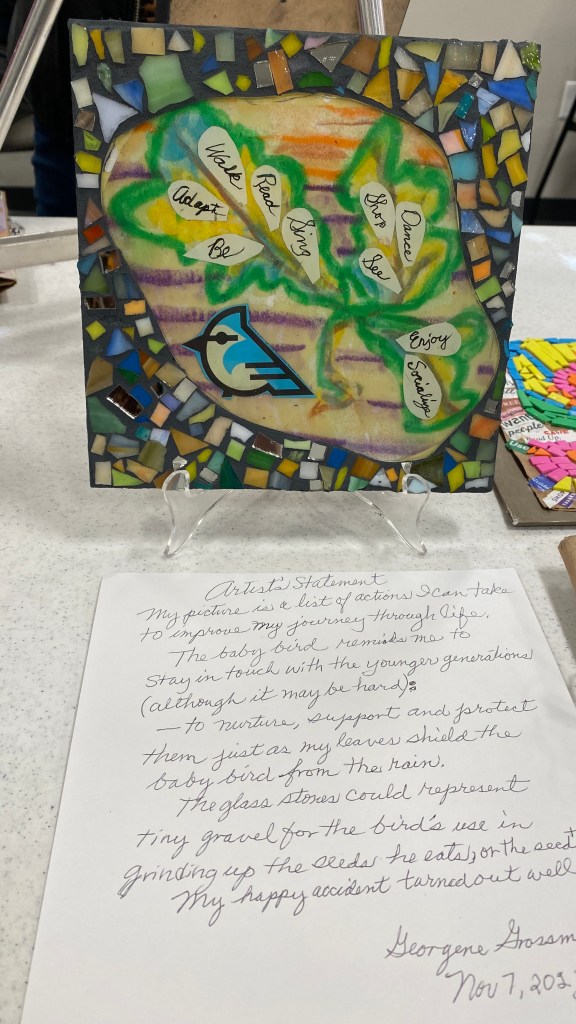 Walk
Read
Adapt
Sing
Be
Shop
Dance
See
Enjoy
Socialize
people
Artist's Statement
My picture is a list of actions I can take
to improve my journey through life.
The baby bird reminds me to
stay in touch with the younger generations
(although it may be hard):
— to nurture, support and protect
them just as my leaves shield the
baby bird from the rain.
The glass stones could represent
tiny gravel for the bird's use in
grinding up the seeds he eats, or the seed
My happy accident turned out well
Georgene Grossm
Nov 7, 202